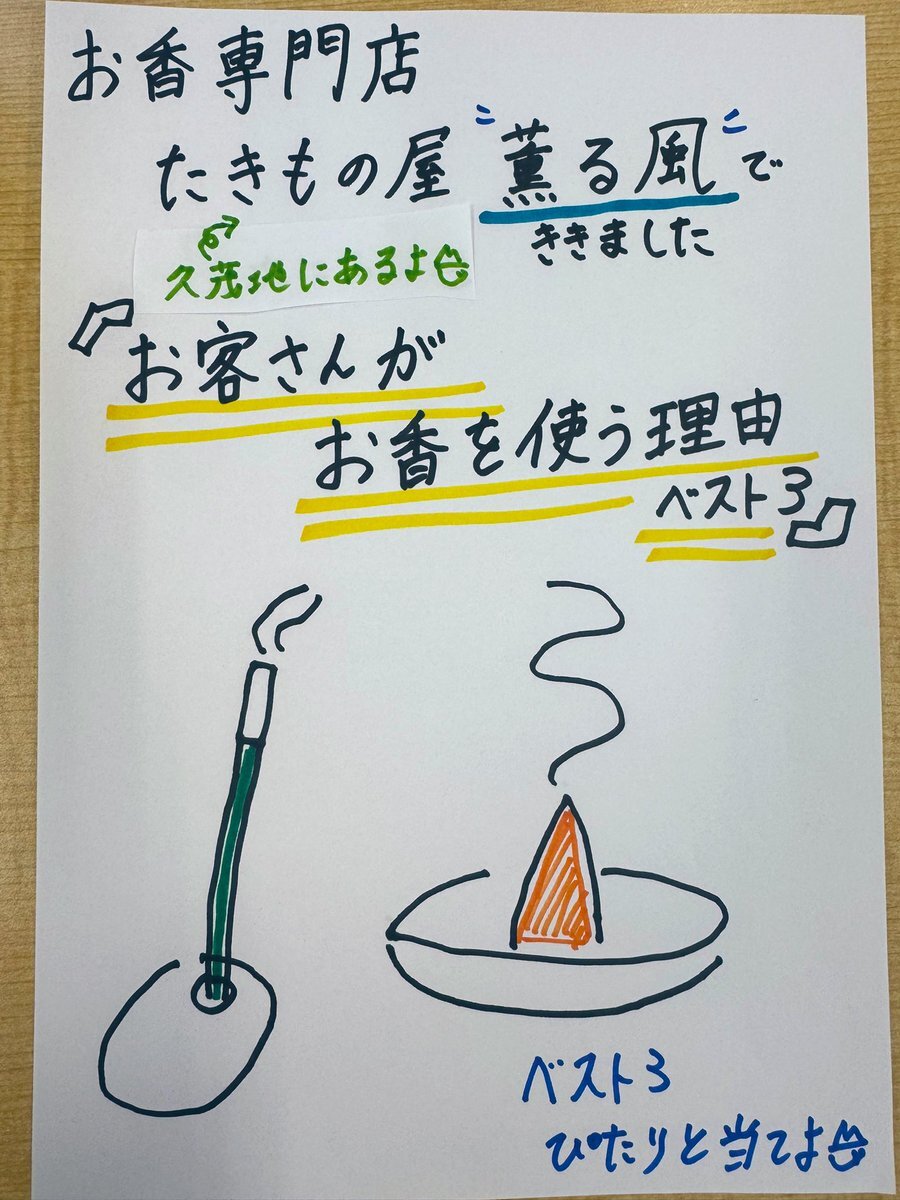 お香専門店
たきもの屋 "薫る風"で
ききました
久茂地にあるよ
『お客さんが
お香を使う理由
ベスト3』
ベスト3
ぴたりと当てよ